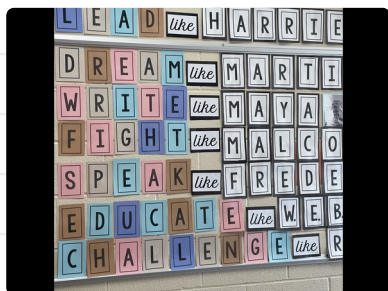 LEAD like HARRIE
DREAM like MARTI
WRITE like MAYA
FIGHT like MALCO
SPEAK like FREDE
EDUCATE like W.E.B.
CHALLENGE like R